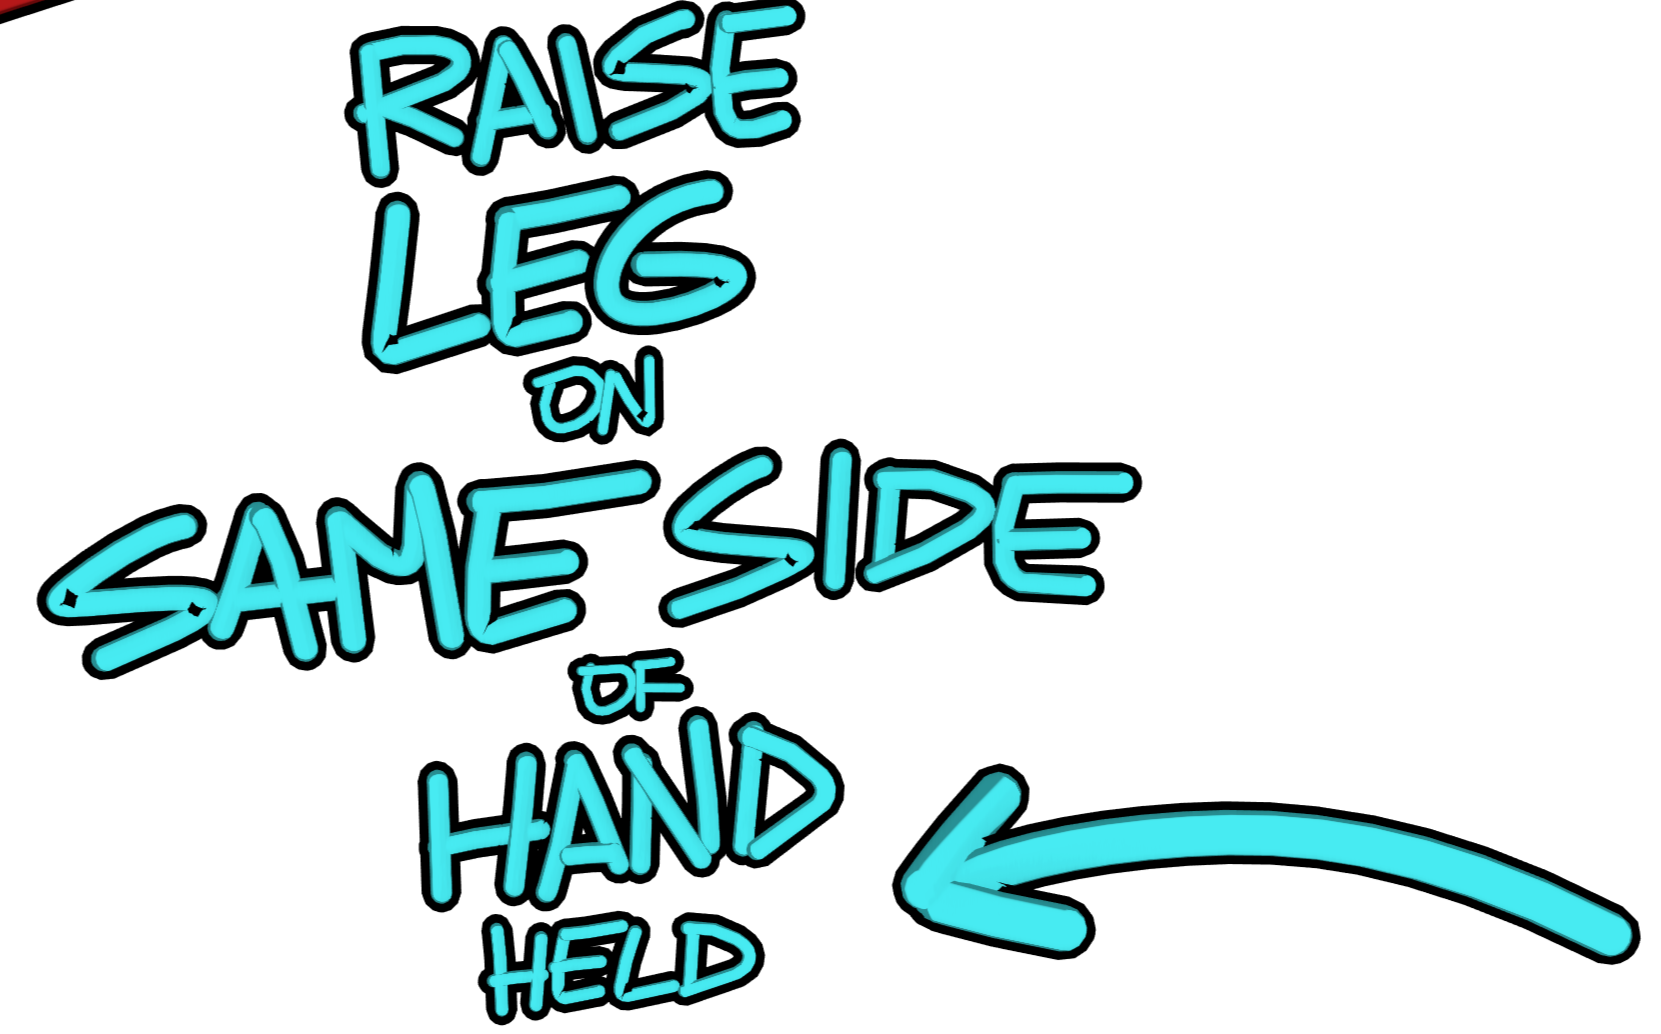 RAISE
LEG
ON
SAME SIDE
OF
HAND
HELD